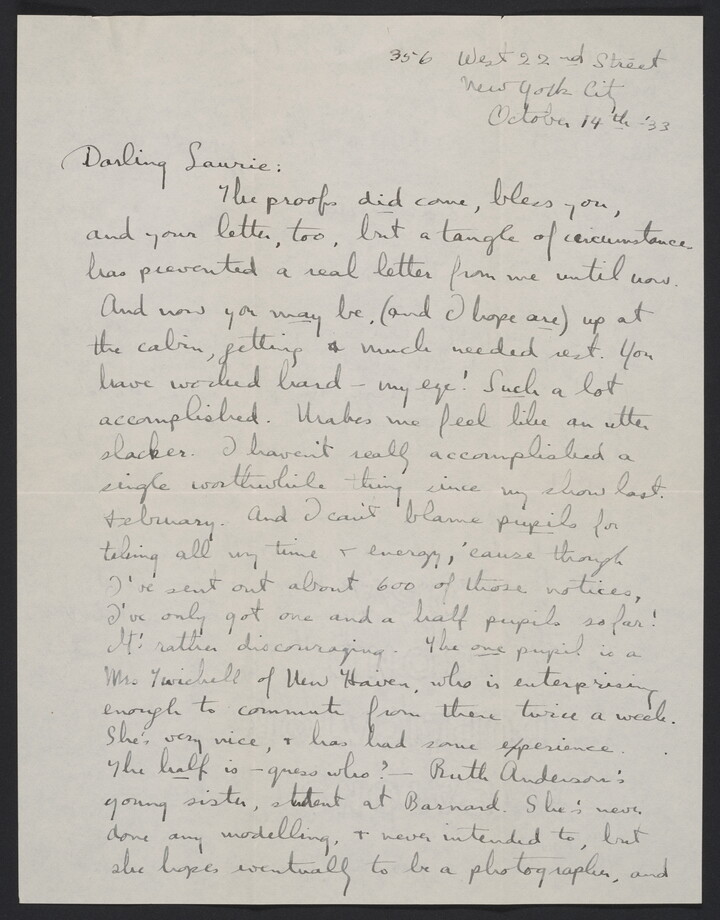 356 West 22nd Street
New York City
October 14th '33
Darling Laurie:
The proofs did come, bless you,
and your letter, too, but a tangle of circumstance
has prevented a real letter from me until now.
And now you may be, (and I hope are) up at
the cabin, getting a much needed rest. You
have worked hard - my eye! Such a lot
accomplished. Makes me feel like an utter
slacker. I haven't really accomplished a
single worthwhile thing since my show last
February. And I can't blame pupils for
taking all my time & energy, 'cause though
I've sent out about 600 of those notices,
I've only got one and a half pupils so far!
It's rather discouraging. The one pupil is a
Mrs Twichell of New Haven, who is enterprising
enough to commute from there twice a week.
She's very nice, & has had some experience.
The half is - guess who? - Ruth Anderson's
young sister, student at Barnard. She's never
done any modelling, & never intended to, but
she hopes eventually to be a photographer, and